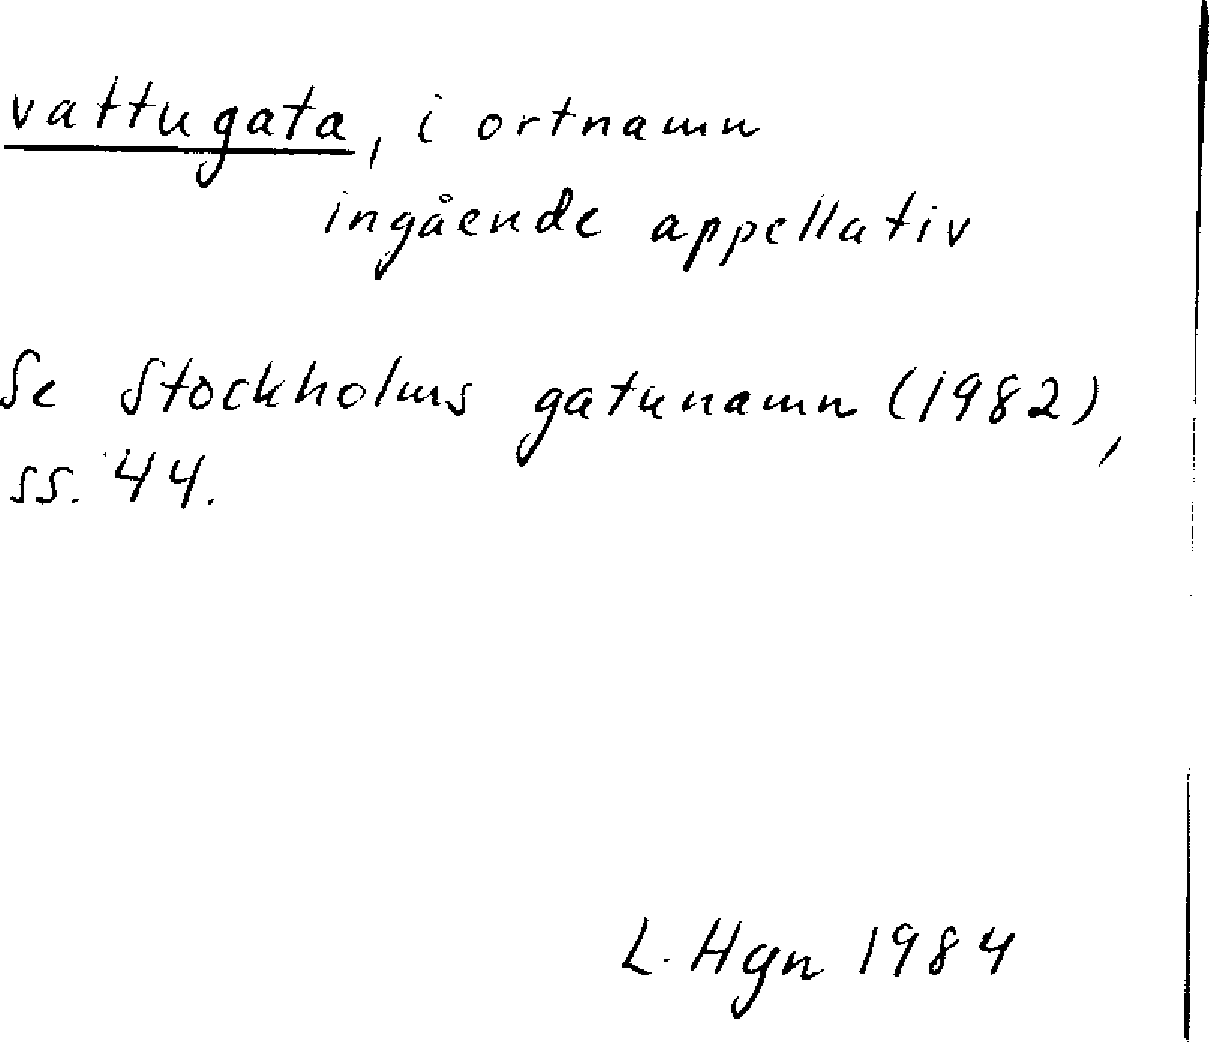 vattugata, i ortnamn
ingående appellativ
Se Stockholms gatunamn (1982),
ss. 44.
L. Hgn 1984